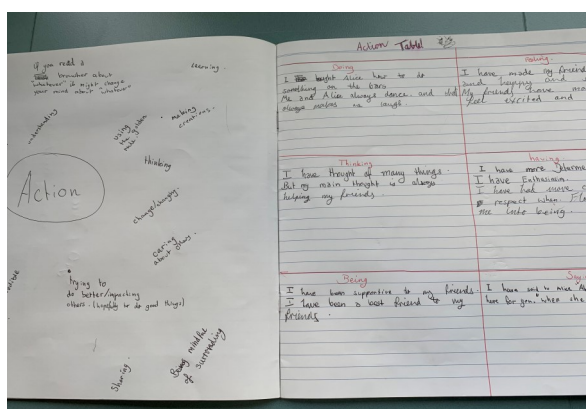 If you read a
browsher about
"whatever" it might change
your mind about "whatever"
learning.
understanding
using
the golden
rule
making
creations.
thinking
Action
change/changing.
caring
about others.
trying to
do better/impacting
others. (hopefully to do good things)
Sharing.
Being mindful
of surrounding
Action Table!
Doing
I taught since how to do
something on the bars.
Me and Alice always dance and
always makes me laugh.
I have made my friends
and happy and
My friends have
feel excited and
Thinking
I have thought of many things.
But my main thought is always
helping my friends.
having
I have more
I have Enthusiasm.
I have had more
respect when
Being
I have been supportive to my friends.
I have been a best friend to my
friends.
I have said to
when she